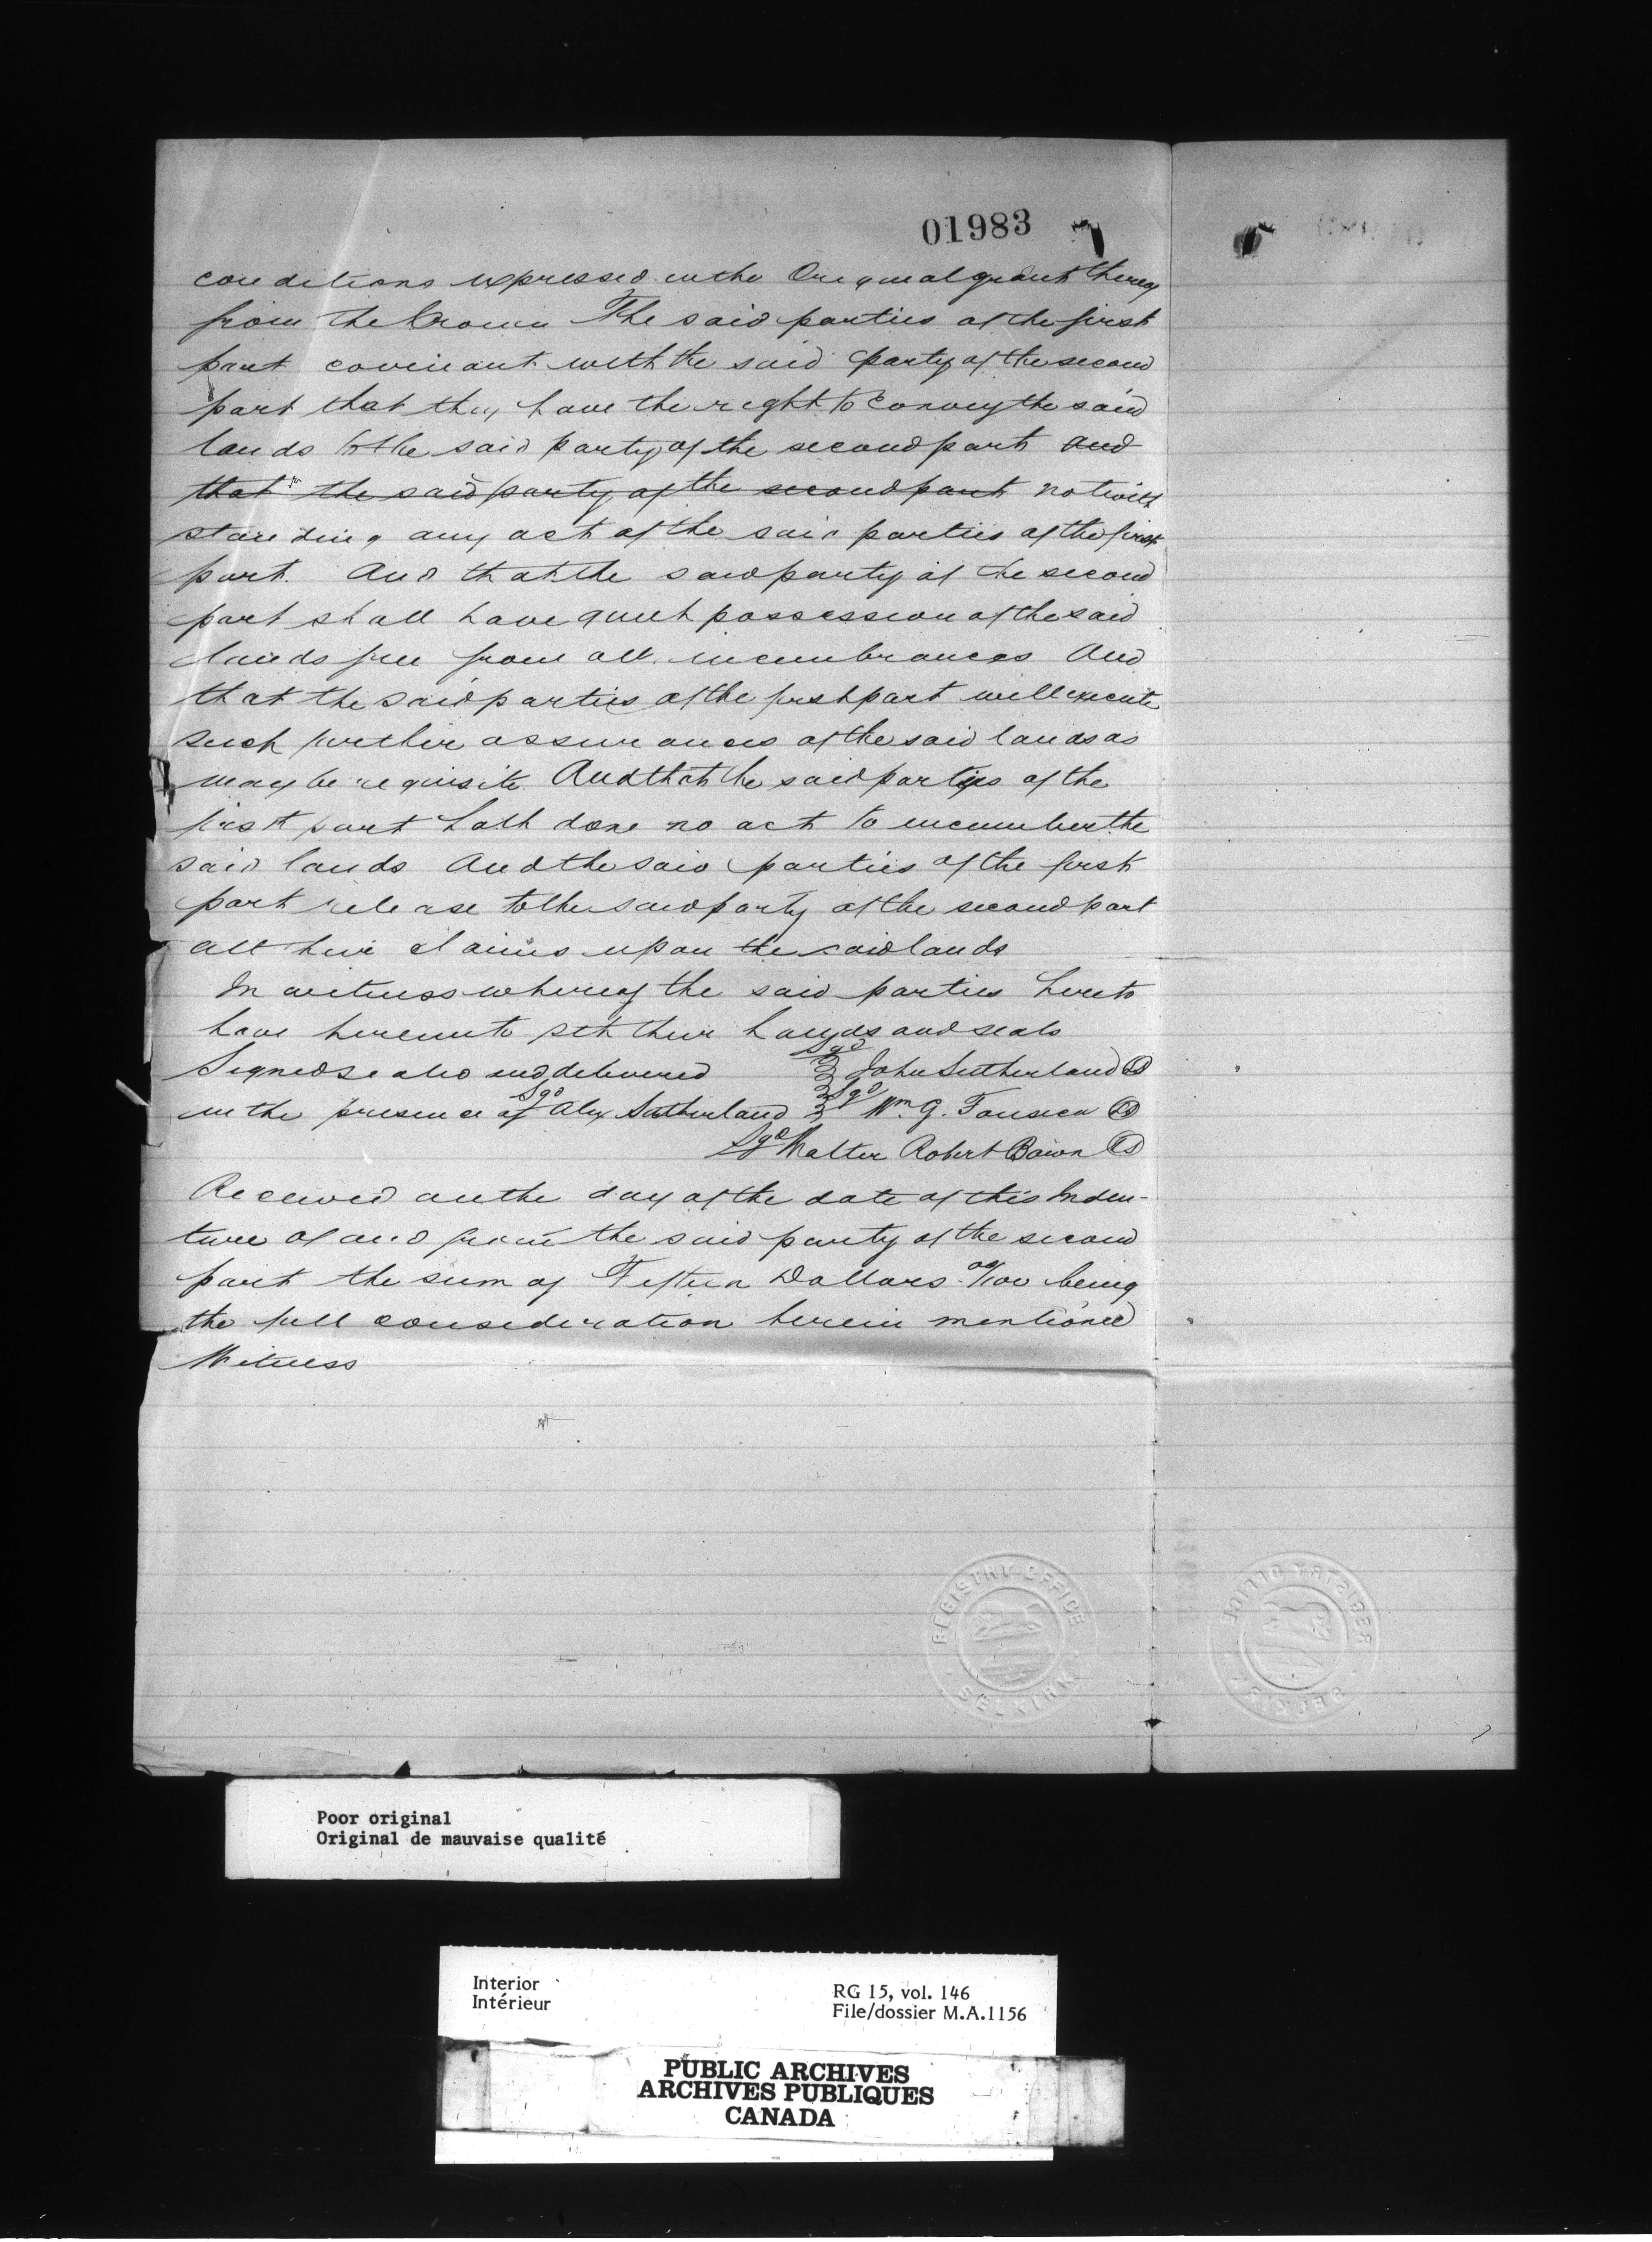 01983
conditions expressed in the Original grant thereof
from the Crown The said parties of the first
part covenant with the said party of the second
part that they have the right to Convey the said
lands to the said party of the second part and
that the said party of the second part notwith
standing any act of the said parties of the first
part. And that the said party of the second
part shall have quiet possession of the said
lands free from all incumbrances And
that the said parties of the first part will execute
such further assurances of the said lands as
may be requisite. And that the said parties of the
first part hath done no act to incumber the
said lands And the said parties of the first
part release to the said party of the second part
all their claims upon the said lands
In witness whereof the said parties hereto
have hereunto set their hands and seals
Signed sealed and delivered Sgd John Sutherland LS
in the presence of Sgd Alex Sutherland Sgd Wm. G. Fonseca LS
Sgd Walter Robert Bown LS
Received on the day of the date of this Inden-
ture of and from the said party of the second
part the sum of Fifteen Dollars 00/100 being
the full consideration herein mentioned
Witness
REGISTRY OFFICE
SELKIRK
Poor original
Original de mauvaise qualité
Interior RG 15, vol. 146
Intérieur File/dossier M.A.1156
PUBLIC ARCHIVES
ARCHIVES PUBLIQUES
CANADA